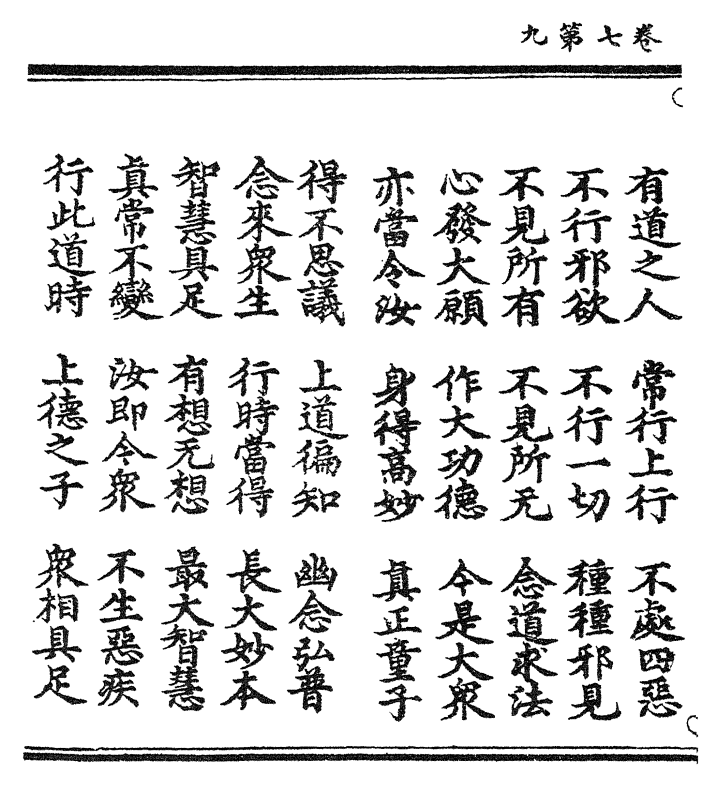 卷七第九
有道之人 常行上行 不處四惡
不行邪欲 不行一切 種種邪見
不見所有 不見所无 念道求法
心發大願 作大功德 今是大衆
亦當令汝 身得高妙 真正童子
得不思議 上道徧知 幽念弘普
念來衆生 行時當得 長大妙本
智慧具足 有想无想 最大智慧
真常不變 汝即令衆 不生惡疾
行此道時 上德之子 衆相具足